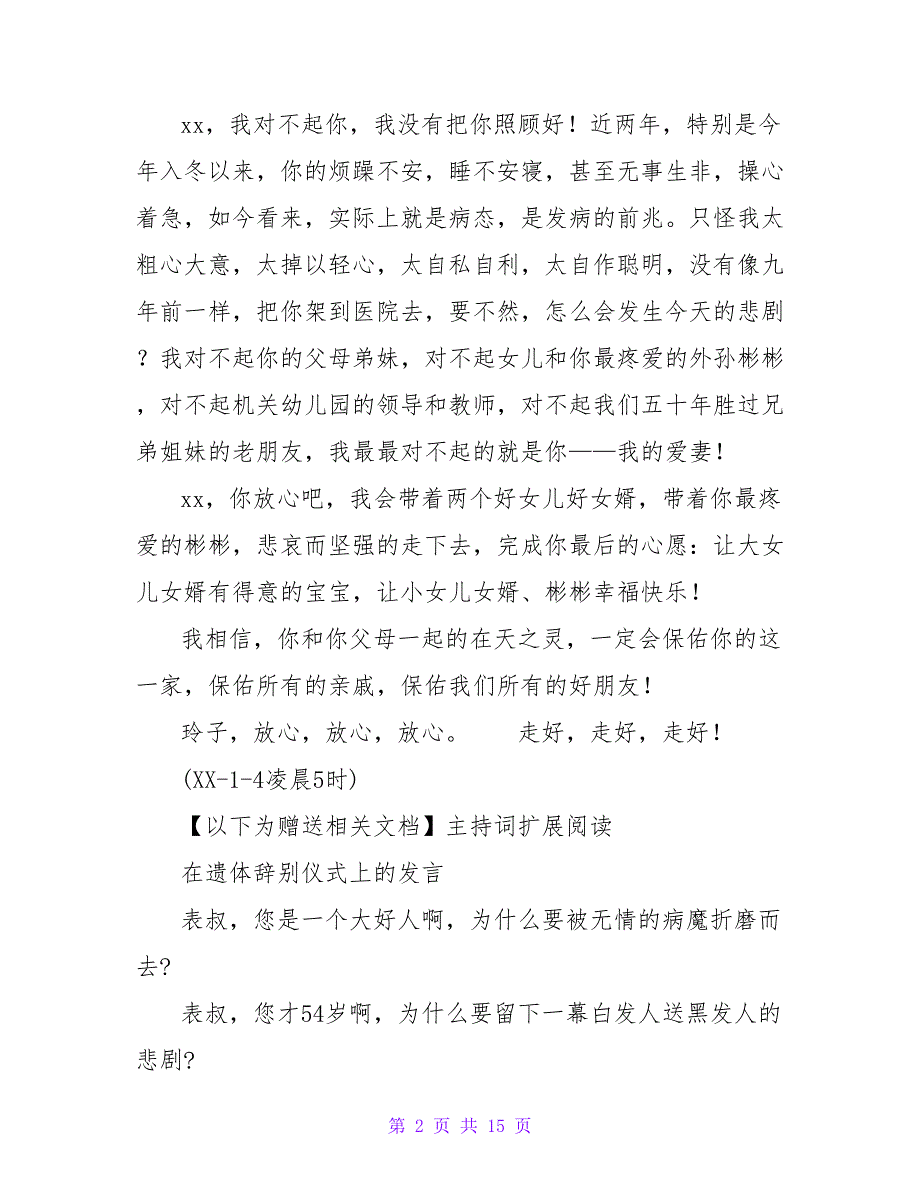 xx，我对不起你，我没有把你照顾好！近两年，特别是今
年入冬以来，你的烦躁不安，睡不安寝，甚至无事生非，操心
着急，如今看来，实际上就是病态，是发病的前兆。只怪我太
粗心大意，太掉以轻心，太自私自利，太自作聪明，没有像九
年前一样，把你架到医院去，要不然，怎么会发生今天的悲剧
？我对不起你的父母弟妹，对不起女儿和你最疼爱的外孙彬彬
，对不起机关幼儿园的领导和教师，对不起我们五十年胜过兄
弟姐妹的老朋友，我最最对不起的就是你——我的爱妻！
xx，你放心吧，我会带着两个好女儿好女婿，带着你最疼
爱的彬彬，悲哀而坚强的走下去，完成你最后的心愿：让大女
儿女婿有得意的宝宝，让小女儿女婿、彬彬幸福快乐！
我相信，你和你父母一起的在天之灵，一定会保佑你的这
一家，保佑所有的亲戚，保佑我们所有的好朋友！
玲子，放心，放心，放心。　　走好，走好，走好！
(XX-1-4凌晨5时)
【以下为赠送相关文档】主持词扩展阅读
在遗体辞别仪式上的发言
表叔，您是一个大好人啊，为什么要被无情的病魔折磨而
去?
表叔，您才54岁啊，为什么要留下一幕白发人送黑发人的
悲剧?
第 2 页 共 15 页